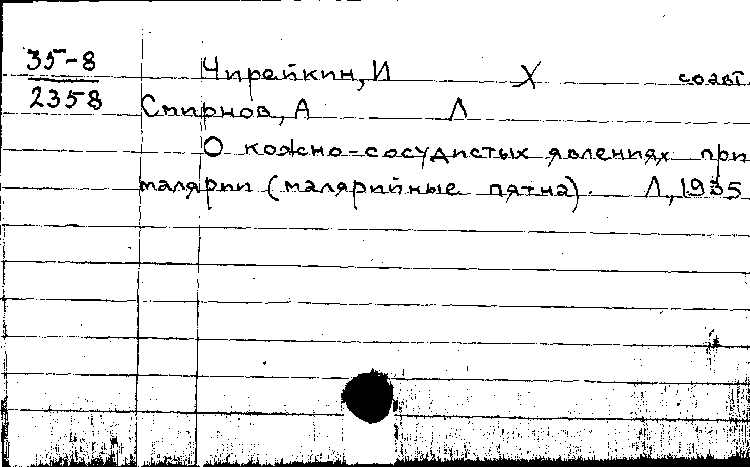 35-8 Чирейкин, И Х соавт
2358 Смирнов, А Л
О кожно-сосудистых явлениях при
малярии (малярийные пятна). Л, 1935